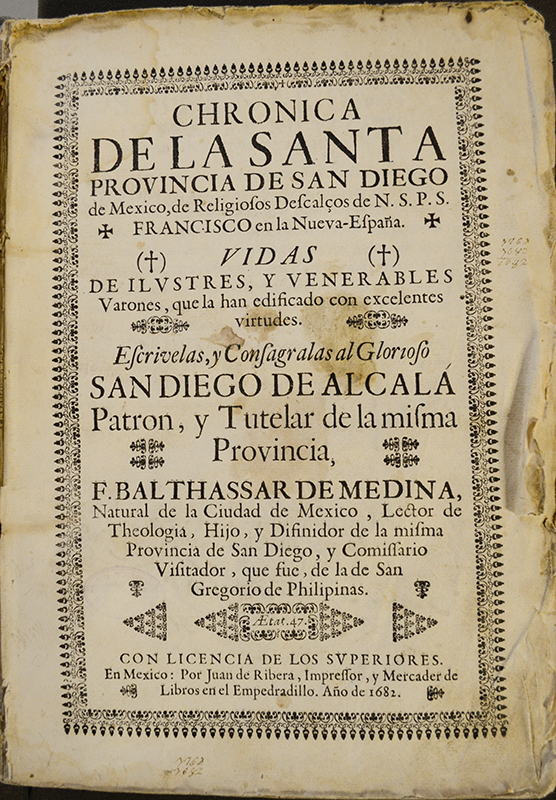 CHRONICA
DE LA SANTA
PROVINCIA DE SAN DIEGO
de Mexico, de Religioſos Deſcalços de N. S. P. S.
✠ FRANCISCO en la Nueva-Eſpaña. ✠
(†) VIDAS (†)
DE ILVSTRES, Y VENERABLES
Varones, que la han edificado con excelentes
virtudes.
Eſcrivelas, y Conſagralas al Glorioſo
SAN DIEGO DE ALCALÁ
Patron, y Tutelar de la miſma
Provincia,
F. BALTHASSAR DE MEDINA,
Natural de la Ciudad de Mexico, Lector de
Theologia, Hijo, y Difinidor de la miſma
Provincia de San Diego, y Comiſſario
Viſitador, que fue, de la de San
Gregorio de Philipinas.
Ætat. 47.
CON LICENCIA DE LOS SVPERIORES.
En Mexico: Por Juan de Ribera, Impreſſor, y Mercader de
Libros en el Empedradillo. Año de 1682.